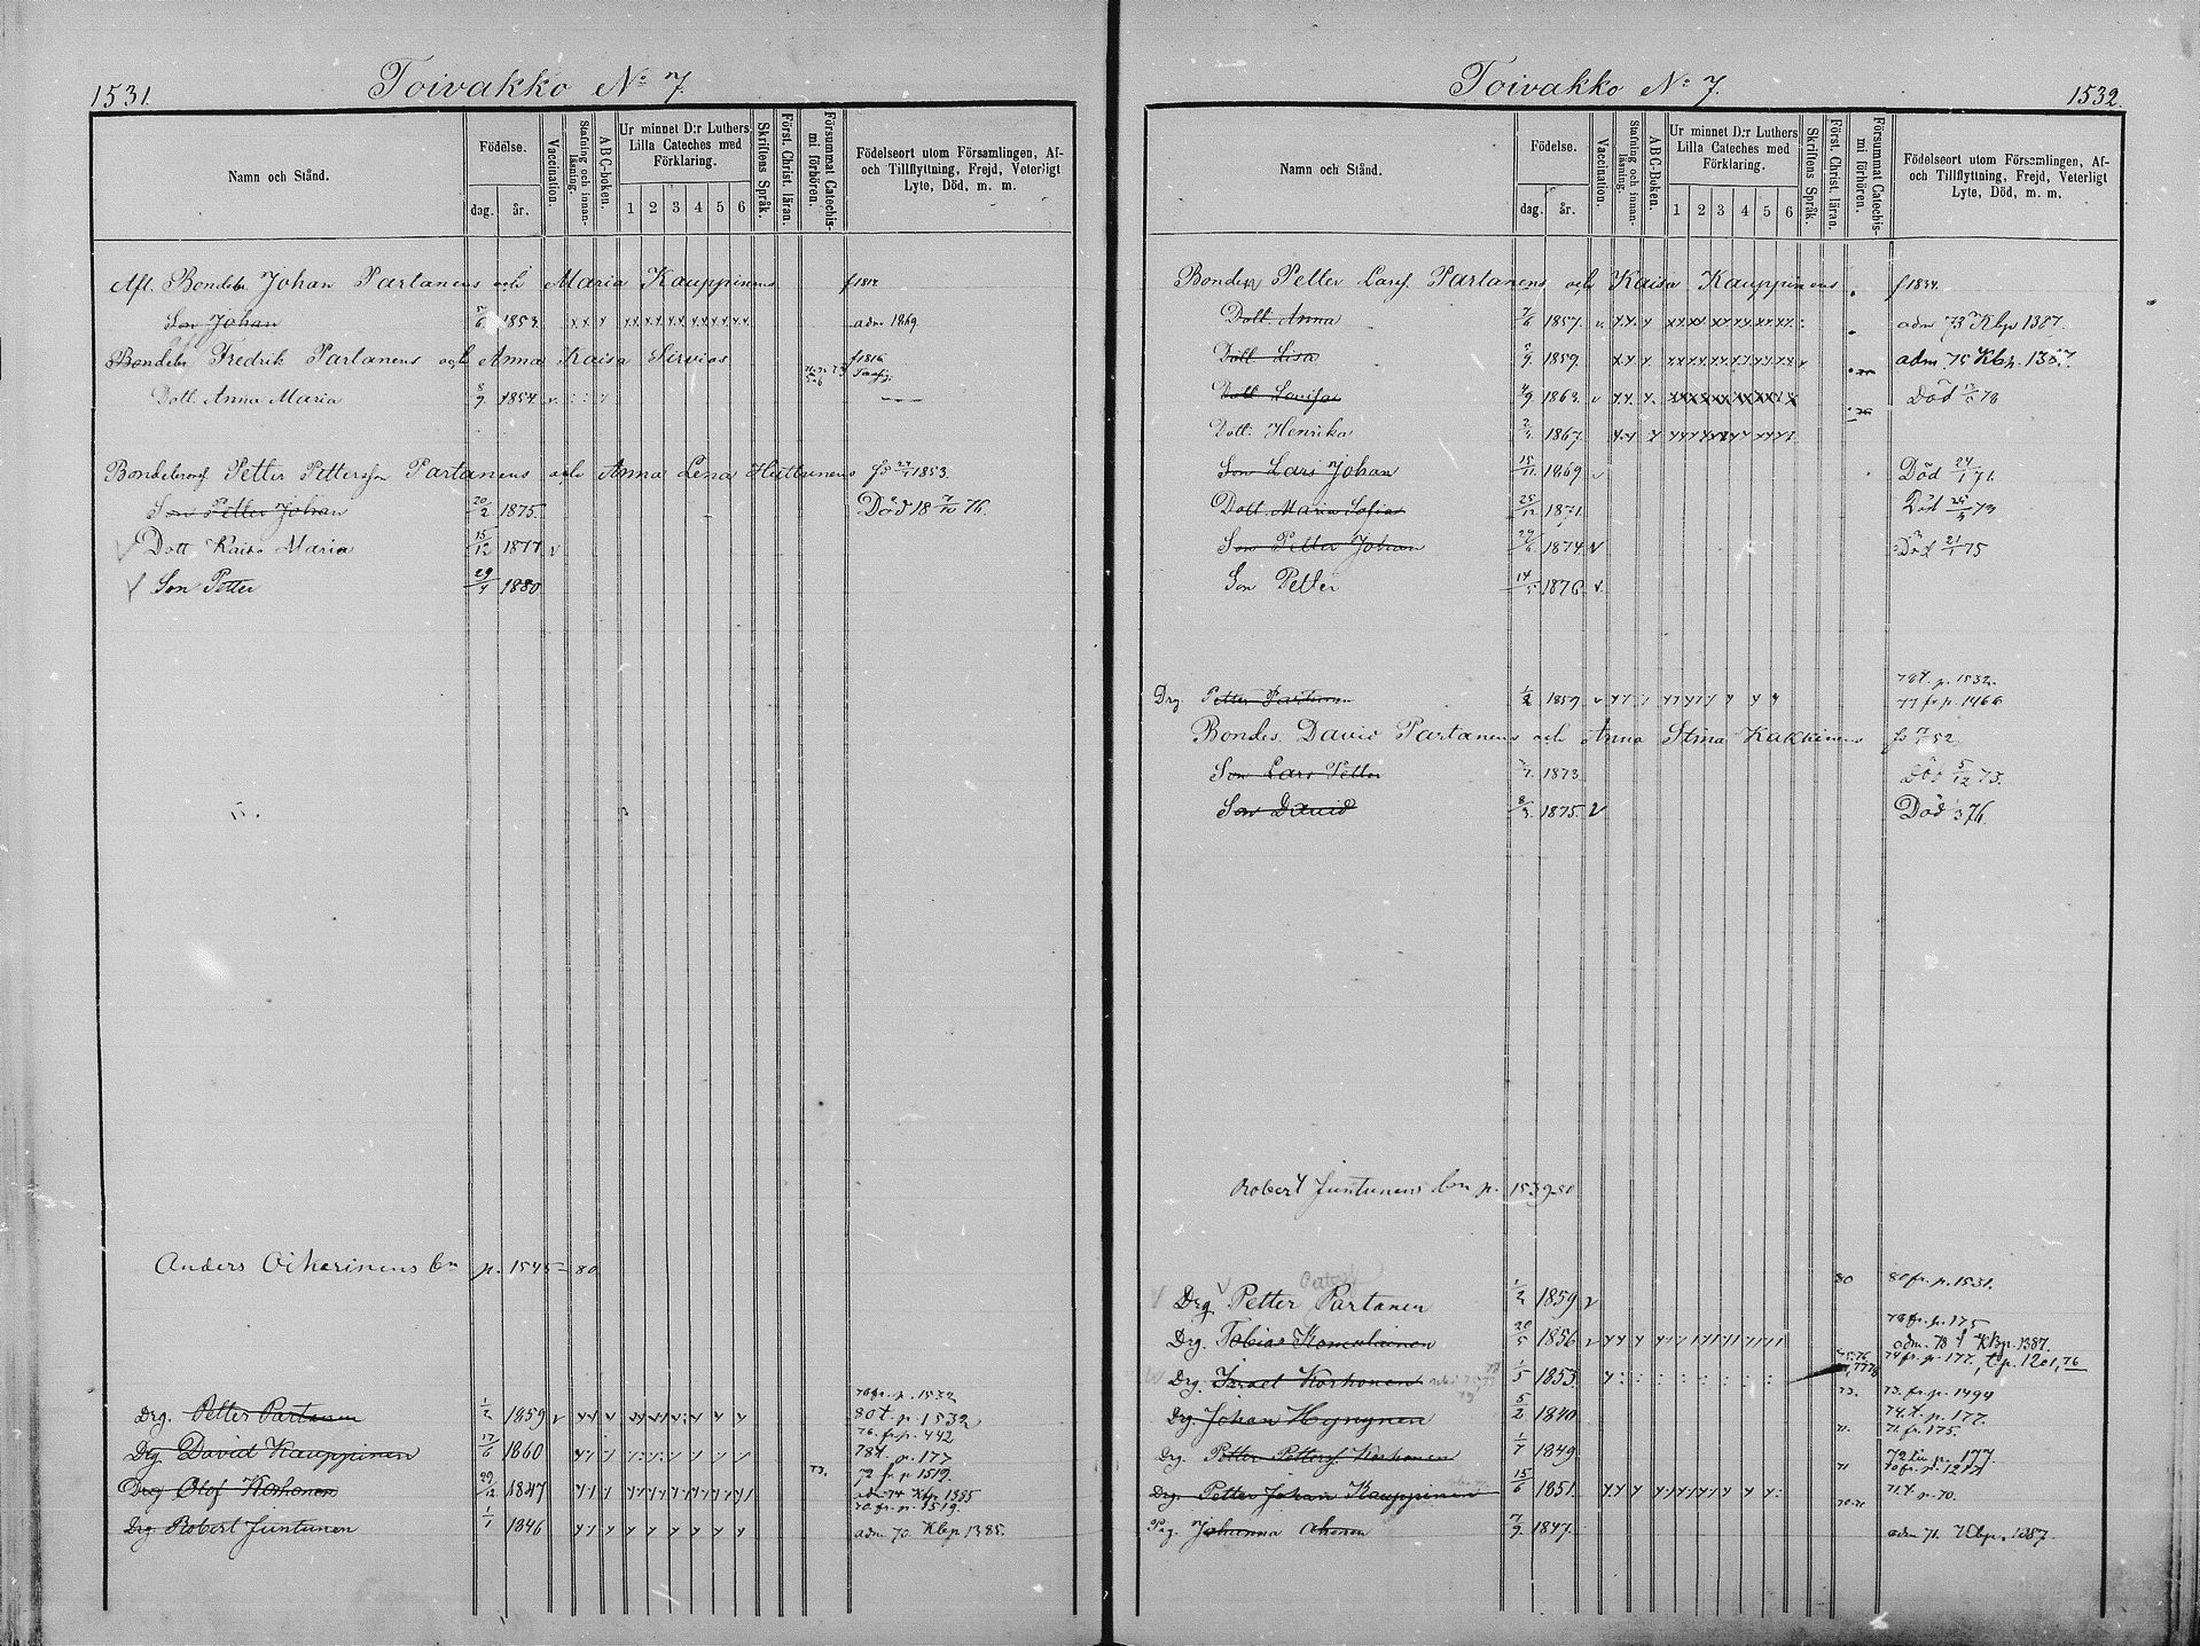 1531.
Toivakko No 7.
Namn och Stånd.
Födelse.
dag.
år.
Vaccination.
Stafning och innan-
läsning.
ABC-boken.
Ur minnet D:r Luthers
Lilla Cateches med
Förklaring.
1 2 3 4 5 6
Skriftens Språk.
Först. Christ. läran.
Försummat Catechis-
mi förhören.
Födelseort utom Församlingen, Af-
och Tillflyttning, Frejd, Veterligt
Lyte, Död, m. m.
Aft. Bondebr Johan Partanens och Maria Kauppinens
Son Johan 1853. adm 1869.
Bondebr Fredrik Partanens och Anna Kaisa Sirviös f 1816
Dott. Anna Maria 8/9 1854. v.
Bondebrors. Petter Pettersson Partanens och Anna Lena Huttunens 1853.
Son Petter Johan 20/2 1875. Död 18 7/10 76.
Dott Kaisa Maria 15/12 1877 v
Son Petter 29/4 1880
Anders Oikarinens p. 1545 = 80
Drg. Petter Partanen 1/2 1859 v 80 t. p. 1532
Drg David Kauppinen 17/6 1860 76. fr. p. 442
78 t. p. 177
Drg Olof Korhonen 29/12 1847 72 fr. p 1519.
Drg. Robert Juntunen 1/1 1846 70. fr. p. 1519.
adm 70. Kbp. 1385.
Toivakko No 7.
1532.
Namn och Stånd.
Födelse.
dag.
år.
Vaccination.
Stafning och innan-
läsning.
ABC-Boken.
Ur minnet D:r Luthers
Lilla Cateches med
Förklaring.
1 2 3 4 5 6
Skriftens Språk.
Först. Christ. läran.
Försummat Catechis-
mi förhören.
Födelseort utom Församlingen, Af-
och Tillflyttning, Frejd, Veterligt
Lyte, Död, m. m.
Petter Larss. Partanens och Kaisa Kauppinens f 1834.
Dott. Anna 7/6 1857. v. adm 73 Kbp 1387.
Dott Lisa 1859. adm. 75 Kbp. 1387.
Dott Lovisa 4/9 1863. v Död 78
Dott: Henrika 1867.
Son Lars Johan 15/11 1869 v Död 24/1 71.
Dott. Maria Sofia 25/12 1871 Död 73
Son Petter Johan 1874. v Död 21/1 75
Son Petter 14/5 1876. v.
78 t. p. 1532.
Drg. Petter Partanen 1/2 1859 v 77 fr p. 1466
Bondes. David Partanens och Anna Stina Kakkinens 52
Son Lars Petter 1873 Död 5/12 73.
Son David 1875. v Död 76.
Robert Juntunens p. 1539-80
Drg. Petter Partanen 1/2 1859 v 80 80 fr. p. 1531.
Drg. Tobias Komulainen 20/5 1856 v 78 fr. p. 175
adm. 78 Kbp. 1387.
Drg. Israel Korhonen 1/5 1853. 74 fr. p. 177, t p. 1201, 76
Drg. Johan Hyyrynen 5/2 1840 73. 73. fr. p. 1494
74. t. p. 177.
Drg. Petter Petterss. Korhonen 1/7 1849 71. 71. fr. 175.
Drg. Petter Johan Kauppinen 15/6 1851. 71
71. t p. 70.
Pig. Johanna Ahonen 7/9 1847. adm 71. Kbp. 1387